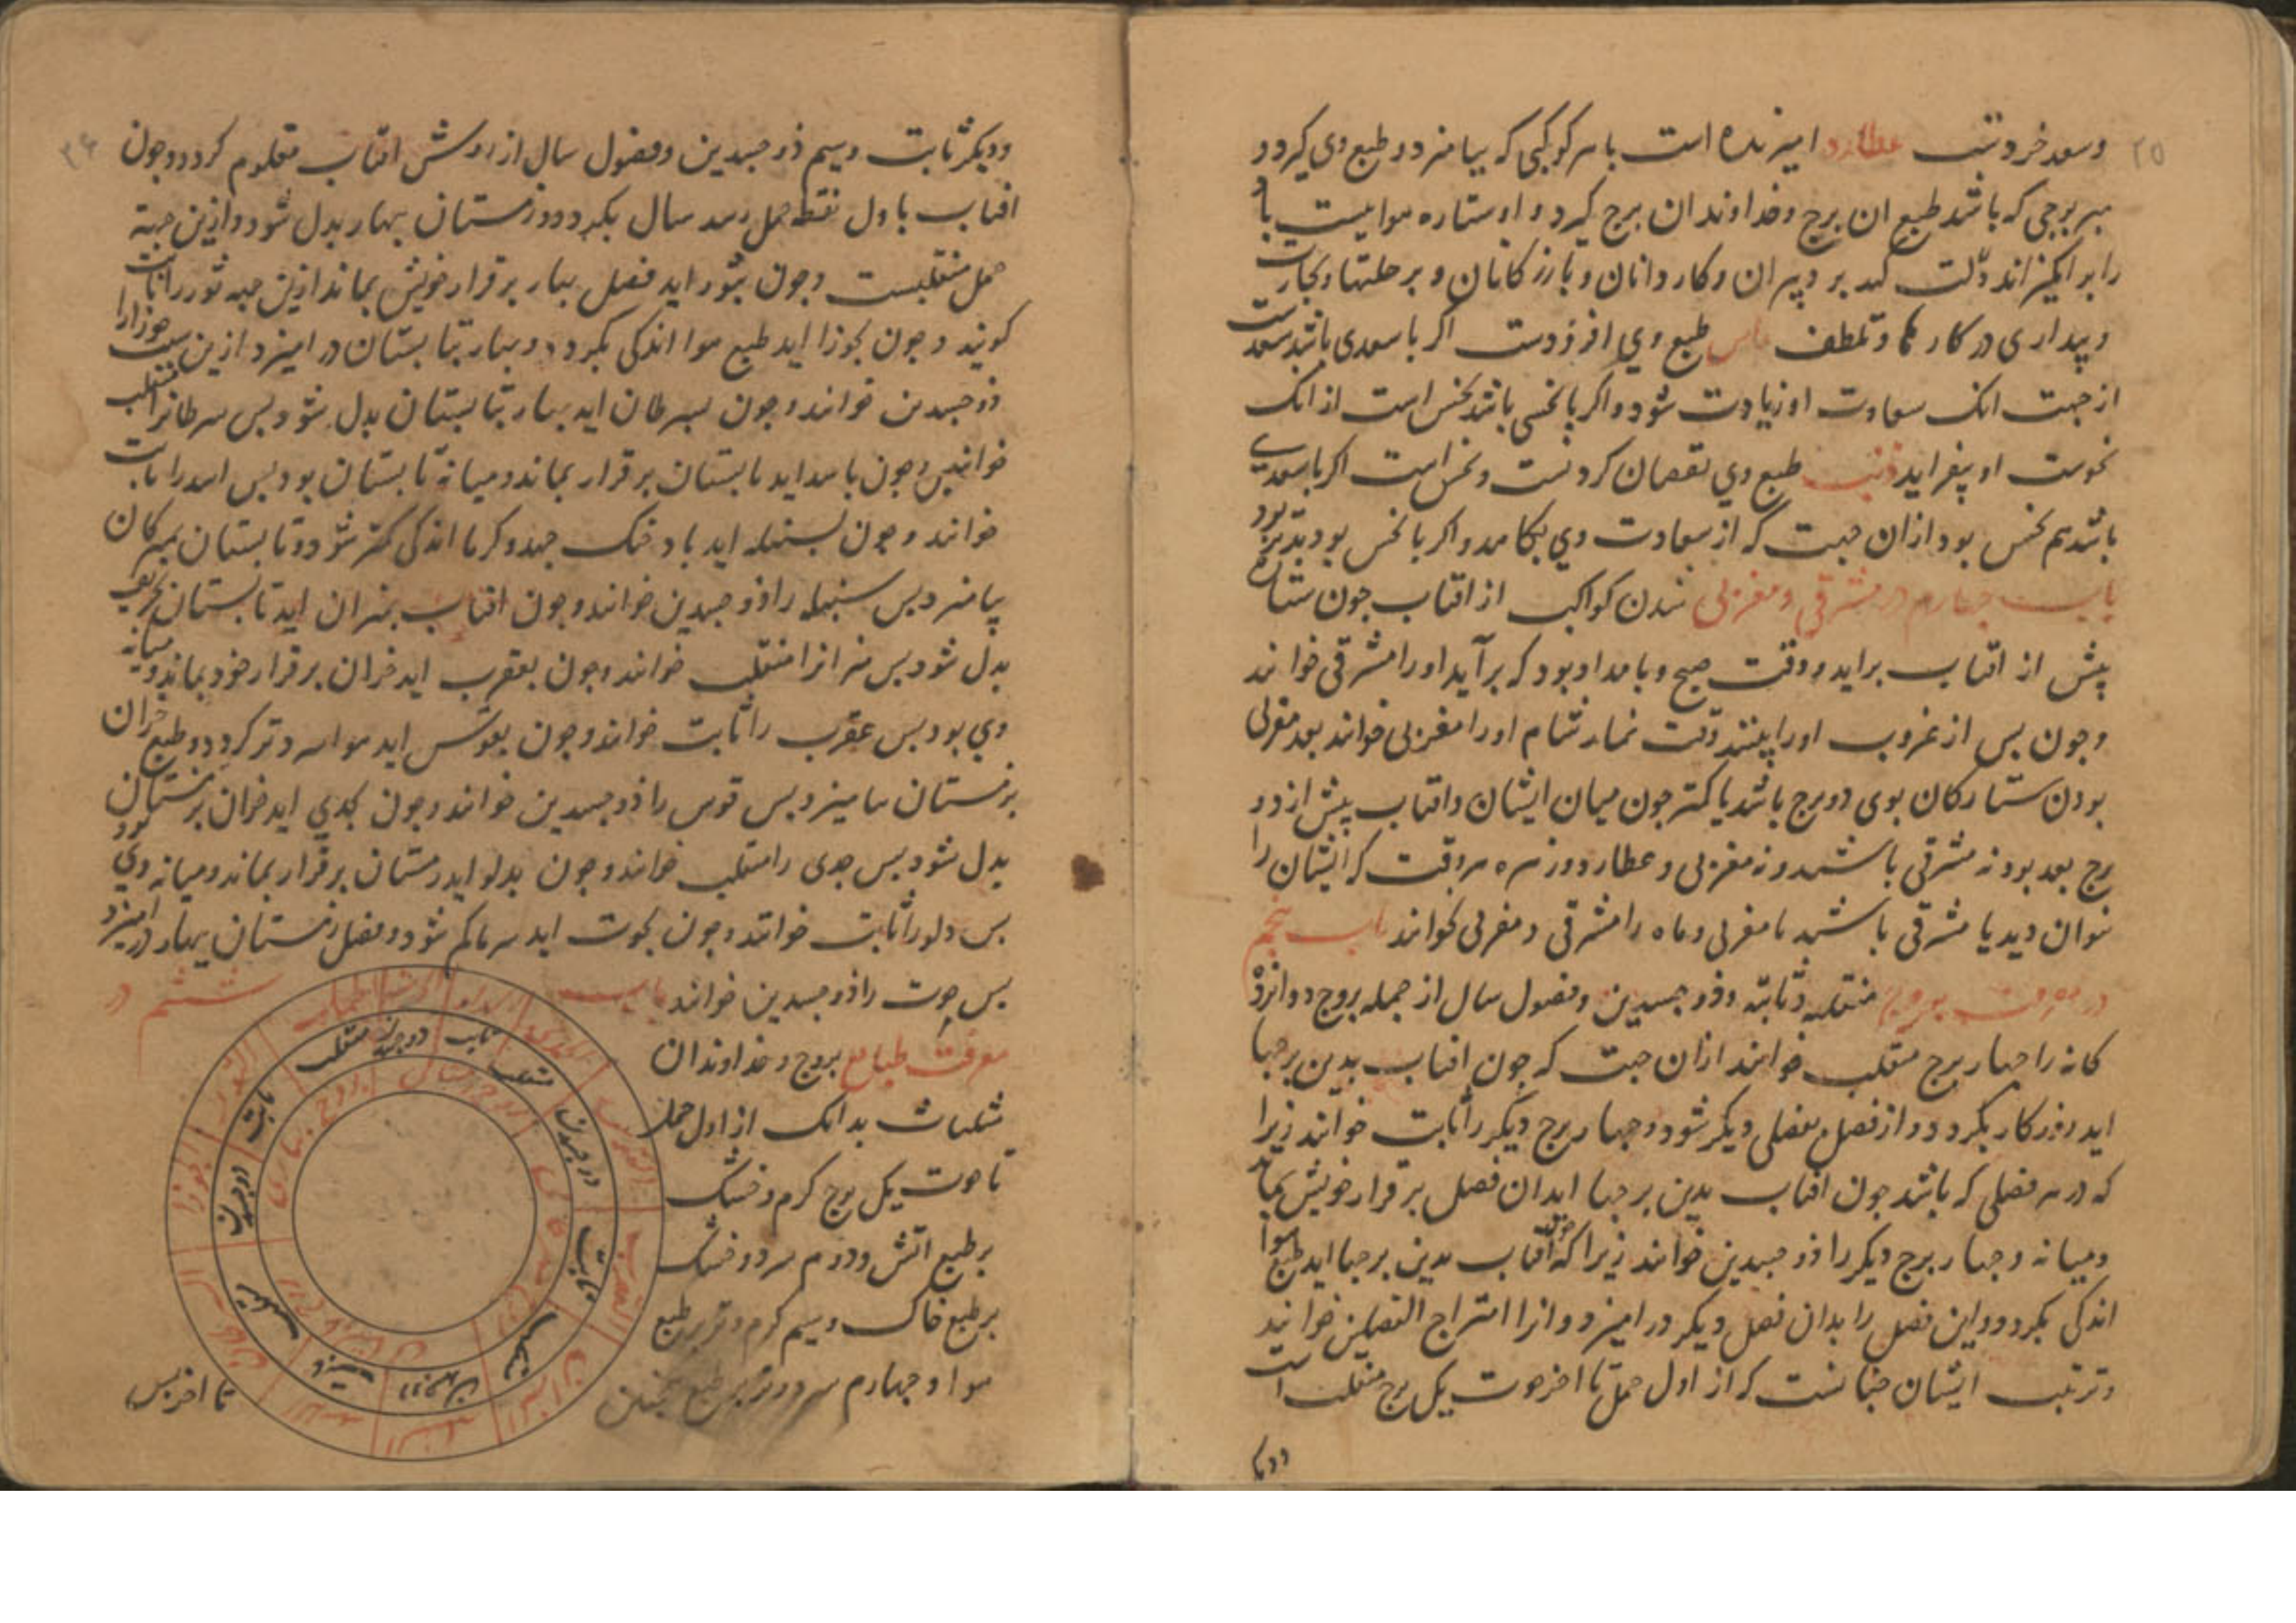 ۲۵
وسعد خردتست عطارد امیزنده است باهر کوکبی که بیامیزد وطبع وی کیرد و
بهر برجی که باشد طبع ان برج وخداوندان برج کیرد و او ستاره هوایست باد
را برانکیزاند دلالت کند بر دبیران وکاردانان وبازرکانان و بر حیلتها وتجارت
وبیداری در کارها وتلطف راس طبع وی افزونست اکر با سعدی باشد سعدست
از جهت انک سعادت او زیادت شود واکر با نحسی باشد نحس است از انک
نحوست او بیفزاید ذنب طبع وی نقصان کردنست ونحس است اکر با سعدی
باشد هم نحس بود ازان جهت که از سعادت وی بکاهد واکر با نحس بود بتر بود
باب چهارم در مشرقی ومغربی شدن کواکب از افتاب چون ستاره
پیش از افتاب براید و وقت صبح وبامداد بود که برآید اورا مشرقی خوانند
وچون پس از غروب اورا بینند وقت نماز شام اورا مغربی خوانند بعد مغربی
بودن ستارکان بوی دو برج باشد یا کمتر چون میان ایشان وافتاب پیش از دو
برج بعد بود نه مشرقی باشند ونه مغربی وعطارد وزهره هر وقت که ایشان را
بتوان دید یا مشرقی باشند یا مغربی وماه را مشرقی ومغربی نخوانند باب پنجم
در معرفت بروج منقلبه وثابته وذوجسدین وفصول سال از جمله بروج دوازده
کانه را چهار برج منقلب خوانند ازان جهت که چون افتاب بدین برجها
اید روزکار بکردد و از فصل بفصلی دیکر شود وچهار برج دیکر را ثابت خوانند زیرا
که در هر فصلی که باشد چون افتاب بدین برجها اید ان فصل بر قرار خویش بماند
ومیانه وچهار برج دیکر را ذوجسدین خوانند زیرا که چون افتاب بدین برجها اید طبع هوا
اندکی بکردد واین فصل را بدان فصل دیکر درامیزد وانرا امتزاج الفصلین خوانند
وترتیب ایشان چنانست که از اول حمل تا اخر حوت یک برج منقلب است
ودیکر
۲۶
ودیکر ثابت وسیم ذوجسدین وفصول سال از روش افتاب معلوم کردد وچون
افتاب باول نقطه حمل رسد سال بکردد وزمستان ببهار بدل شود وازین جهة
حمل منقلبست وچون بثور اید فصل بهار بر قرار خویش بماند ازین جهه ثور را ثابت
کویند وچون بجوزا اید طبع هوا اندکی بکردد وبهار بتابستان درامیزد ازین سبب جوزا را
ذوجسدین خوانند وچون بسرطان اید بهار بتابستان بدل شود پس سرطانرا منقلب
خوانند وچون باسد اید تابستان بر قرار بماند ومیانه تابستان بود پس اسد را ثابت
خوانند وچون بسنبله اید باد خنک جهد وکرما اندکی کمتر شود وتابستان بمهرکان
بیامیزد پس سنبله را ذوجسدین خوانند وچون افتاب بمیزان اید تابستان بخریف
بدل شود پس میزانرا منقلب خوانند وچون بعقرب اید خزان بر قرار خود بماند ومیانه
وی بود پس عقرب را ثابت خوانند وچون بقوس اید هوا سردتر کردد وطبع خزان
بزمستان بیامیزد پس قوس را ذوجسدین خوانند وچون بجدی اید خزان بزمستان
بدل شود پس جدی را منقلب خوانند وچون بدلو اید زمستان بر قرار بماند ومیانه وی بود
پس دلو را ثابت خوانند وچون بحوت اید سرما کم شود وفصل زمستان ببهار درامیزد
پس حوت را ذوجسدین خوانند باب ششم در
معرفت طبایع بروج وخداوندان
مثلثات بدانک از اول حمل
تا حوت یک برج کرم وخشک
بر طبع اتش ودوم سرد وخشک
بر طبع خاک وسیم کرم وتر بر طبع
هوا وچهارم سرد وتر بر طبع همچنین
تا اخر پس
الثور
الجوزا
السرطان
الاسد
السنبله
المیزان
العقرب
القوس
منقلب
ثابت
ذوجسدین
منقلب
ثابت
ذوجسدین
منقلب
ثابت
ذوجسدین
منقلب
ثابت
ذوجسدین